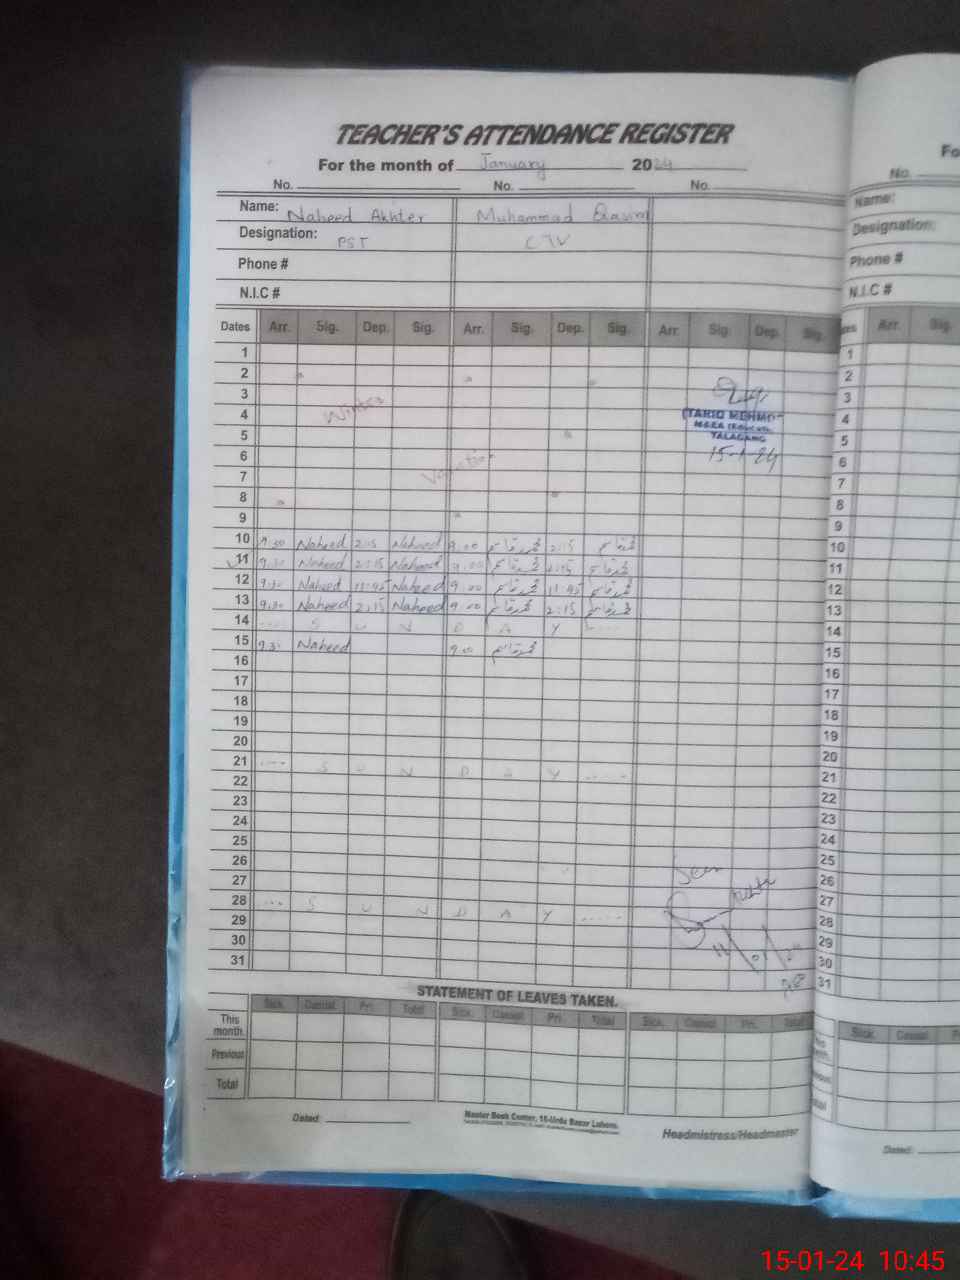 TEACHER'S ATTENDANCE REGISTER
For the month of January 2024
No. No. No.
Name: Naheed Akhter Muhammad Qasim
Designation: PST
Phone #
N.I.C #
Dates Arr. Sig. Dep. Sig. Arr. Sig. Dep. Sig. Arr. Sig. Dep. Sig.
1
2
3
4 Winter
5
6
7 Vacation
8
9
10 Naheed 2:15 Naheed 9:00 محمد قاسم 2:15
11 9:30 Naheed 2:15 Naheed 9:00 محمد قاسم 2:15 محمد قاسم
12 9:30 Naheed 11:45 Naheed 9:00 محمد قاسم 11:45 محمد قاسم
13 9:30 Naheed 2:15 Naheed 9:00 محمد قاسم 2:15 محمد قاسم
14 .... S U N D A Y .....
15 9:30 Naheed 9:00 محمد قاسم
16
17
18
19
20
21 .... S U N D A Y .....
22
23
24
25
26
27
28 .... S U N D A Y .....
29
30
31
TARIQ MEHMO
TALAGANG
15-1-24
Seen
STATEMENT OF LEAVES TAKEN.
Sick. Casual. Pri. Total Sick. Casual. Pri. Total Sick. Casual. Pri. Total
This month.
Previous
Total
Dated:
Master Book Center, 16-Urdu Bazar Lahore.
Headmistress/Headmaster
No.
Name:
Designation:
Phone #
N.I.C #
Arr. Sig.
1
2
3
4
5
6
7
8
9
10
11
12
13
14
15
16
17
18
19
20
21
22
23
24
25
26
27
28
29
30
31
Sick. Casual.
Dated:
15-01-24 10:45